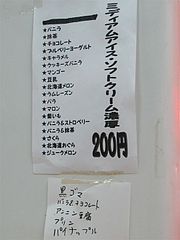 ミディアムアイス・ソフトクリーム濃厚
200円
★バニラ
★抹茶
★チョコレート
★ブルーベリーヨーグルト
★キャラメル
★クッキーズバニラ
★マンゴー
★豆乳
★北海道メロン
★ラムレーズン
★バラ
★マロン
★紫いも
★バニラ&ストロベリー
★バニラ&抹茶
★さくら
★北海道あぐら
★ジュークメロン
黒ゴマ
バニラ&チョコレート
アンニン豆腐
プリン
パイナップル